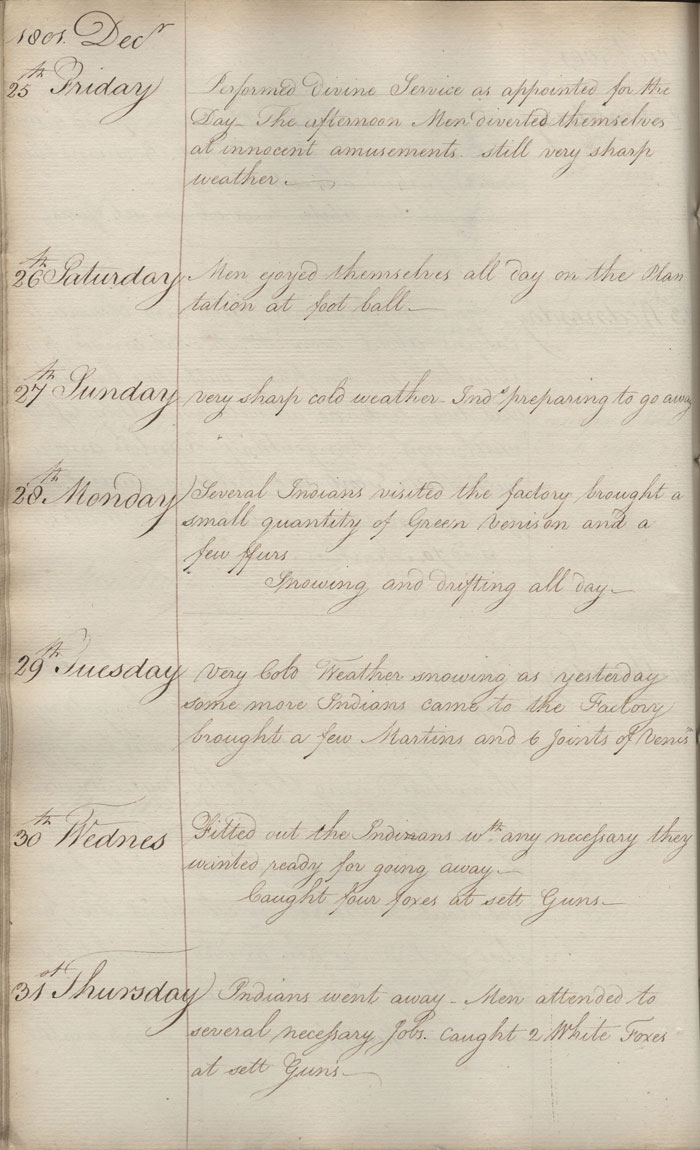 1801. Decr
25th Friday Performed Divine Service as appointed for the
Day. The afternoon Men diverted themselves
at innocent amusements. still very sharp
weather.
26th Saturday Men ejoyed themselves all day on the Plan
tation at foot ball.
27th Sunday very sharp cold weather. Inds preparing to go away
28th Monday Several Indians visited the factory brought a
small quantity of Green Venison and a
few ffurs
Snowing and drifting all day.
29th Tuesday very Cold Weather snowing as yesterday
some more Indians came to the Factory
brought a few Martins and 6 Joints of Venisn
30th Wednes Fitted out the Indians wth any necessary they
wanted ready for going away.
Caught four foxes at sett Guns.
31st Thursday Indians went away. Men attended to
several necessary Jobs. Caught 2 White Foxes
at sett Guns.